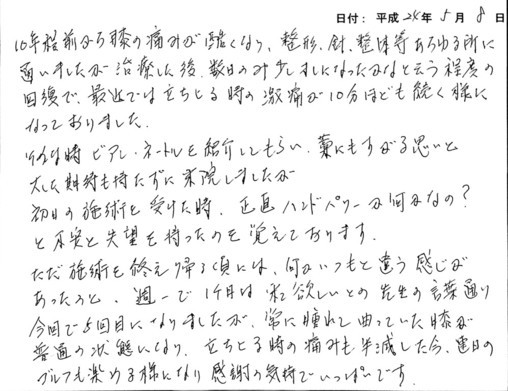 日付：平成24年5月8日
10年程前から膝の痛みが酷くなり、整形、針、整体等あらゆる所に
通いましたが治療した後、数日のみ少しましになったかなと云う程度の
回復で、最近では立ちとる時の激痛が10分ほども続く様に
なっておりました。
時 ピアレ・ネートルを紹介してもらい、藁にもすがる思いと
大した期待も持たずに来院しましたが
初日の施術を受けた時、正直ハンドパワーか何かなの？
と不安と失望を持ったのを覚えております。
ただ施術を終え帰る頃には、何かいつもと違う感じが
あったのと、週一で1ケ月は来て欲しいとの先生の言葉通り
今回で5回目になりましたが、常に腫れて曲っていた膝が
普通の状態になり、立ちとる時の痛みも半減した今、連日の
ゴルフも楽める様になり感謝の気持でいっぱいです。